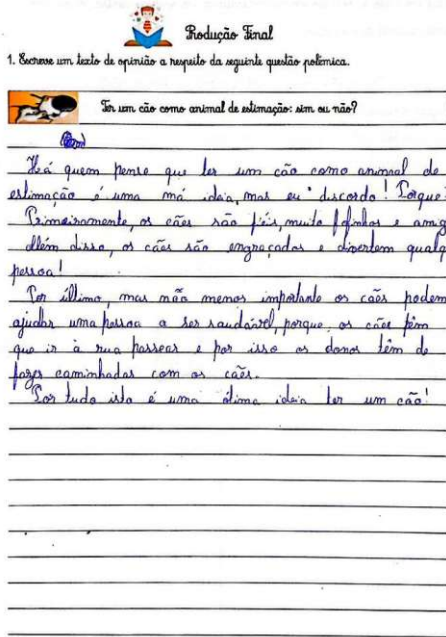 Produção Final
1. Escreve um texto de opinião a respeito da seguinte questão polémica.
Ter um cão como animal de estimação: sim ou não?
Há quem pense que ter um cão como animal de
estimação é uma má ideia, mas eu discordo! Porque:
Primeiramente, os cães são fiéis, muito fofinhos e amig
Além disso, os cães são engraçados e divertem qualq
pessoa!
Por último, mas não menos importante os cães podem
ajudar uma pessoa a ser saudável, porque, os cães têm
que ir à rua passear e por isso os donos têm de
fazer caminhadas com os cães.
Por tudo isto é uma ótima ideia ter um cão!